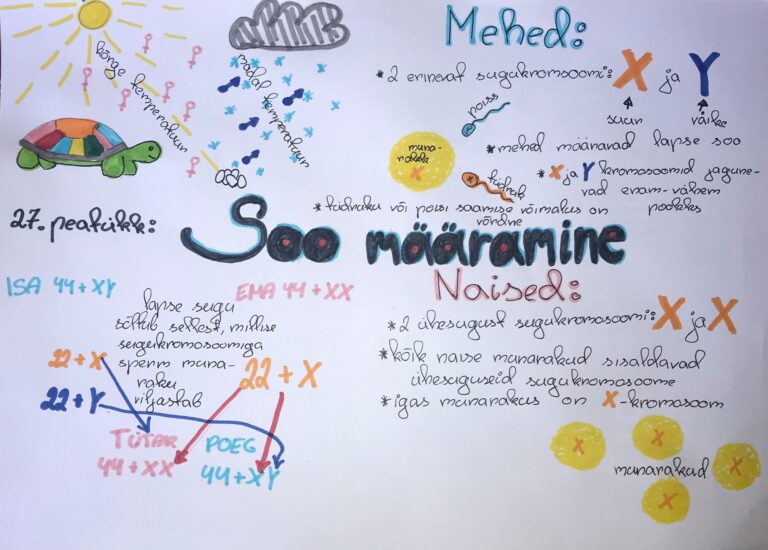 kõrge temperatuur
madal temperatuur
27. peatükk:
Soo määramine
Mehed:
*2 erinevat sugukromsoomi: X ja Y
suur
väike
poiss
tüdruk
muna-
rakk
X
*mehed määravad lapse soo
*X ja Y kromosoomid jagune-
vad enam-vähem
pooleks
*tüdruku või poisi saamise võimalus on
võrdne
ISA 44+XY
EMA 44+XX
lapse sugu
sõltub sellest, millise
sugukromosoomiga
sperm muna-
raku
viljastab
22+X
22+Y
22+X
TÜTAR
44+XX
POEG
44+XY
Naised:
*2 ühesugust sugukromosoomi: X ja X
*kõik naise munarakud sisaldavad
ühesuguseid sugukromosoome
*igas munarakus on X-kromosoom
X
X
X
X
munarakud